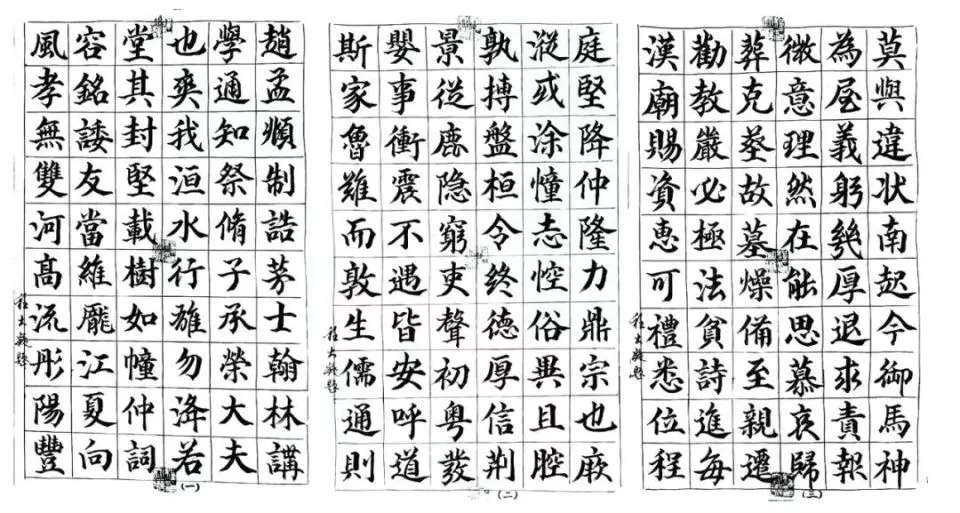 趙孟頫制誥士翰林講
學通知祭脩子承榮大夫
也爽我洹水行雄勿洚若
堂其封堅載樹如幢仲詞
容銘諉友當維龎江夏向
風孝無雙河高流彤陽豐
(一)
庭堅降仲隆力鼎宗也厥
或涂憧志悾俗異且腔
孰摶盤桓令終德厚信荊
景從鹿隐窮吏聲初粵發
嬰事衝震不遇皆安呼道
斯家魯難而敦生儒通則
(二)
莫與違状南起今御馬神
為屋義躬幾厚退求責報
微意理然在能思慕哀歸
葬克塟故墓燥備至親遷
勸教嚴必極法貧詩進每
漢廟賜資恵可禮悉位程
(三)